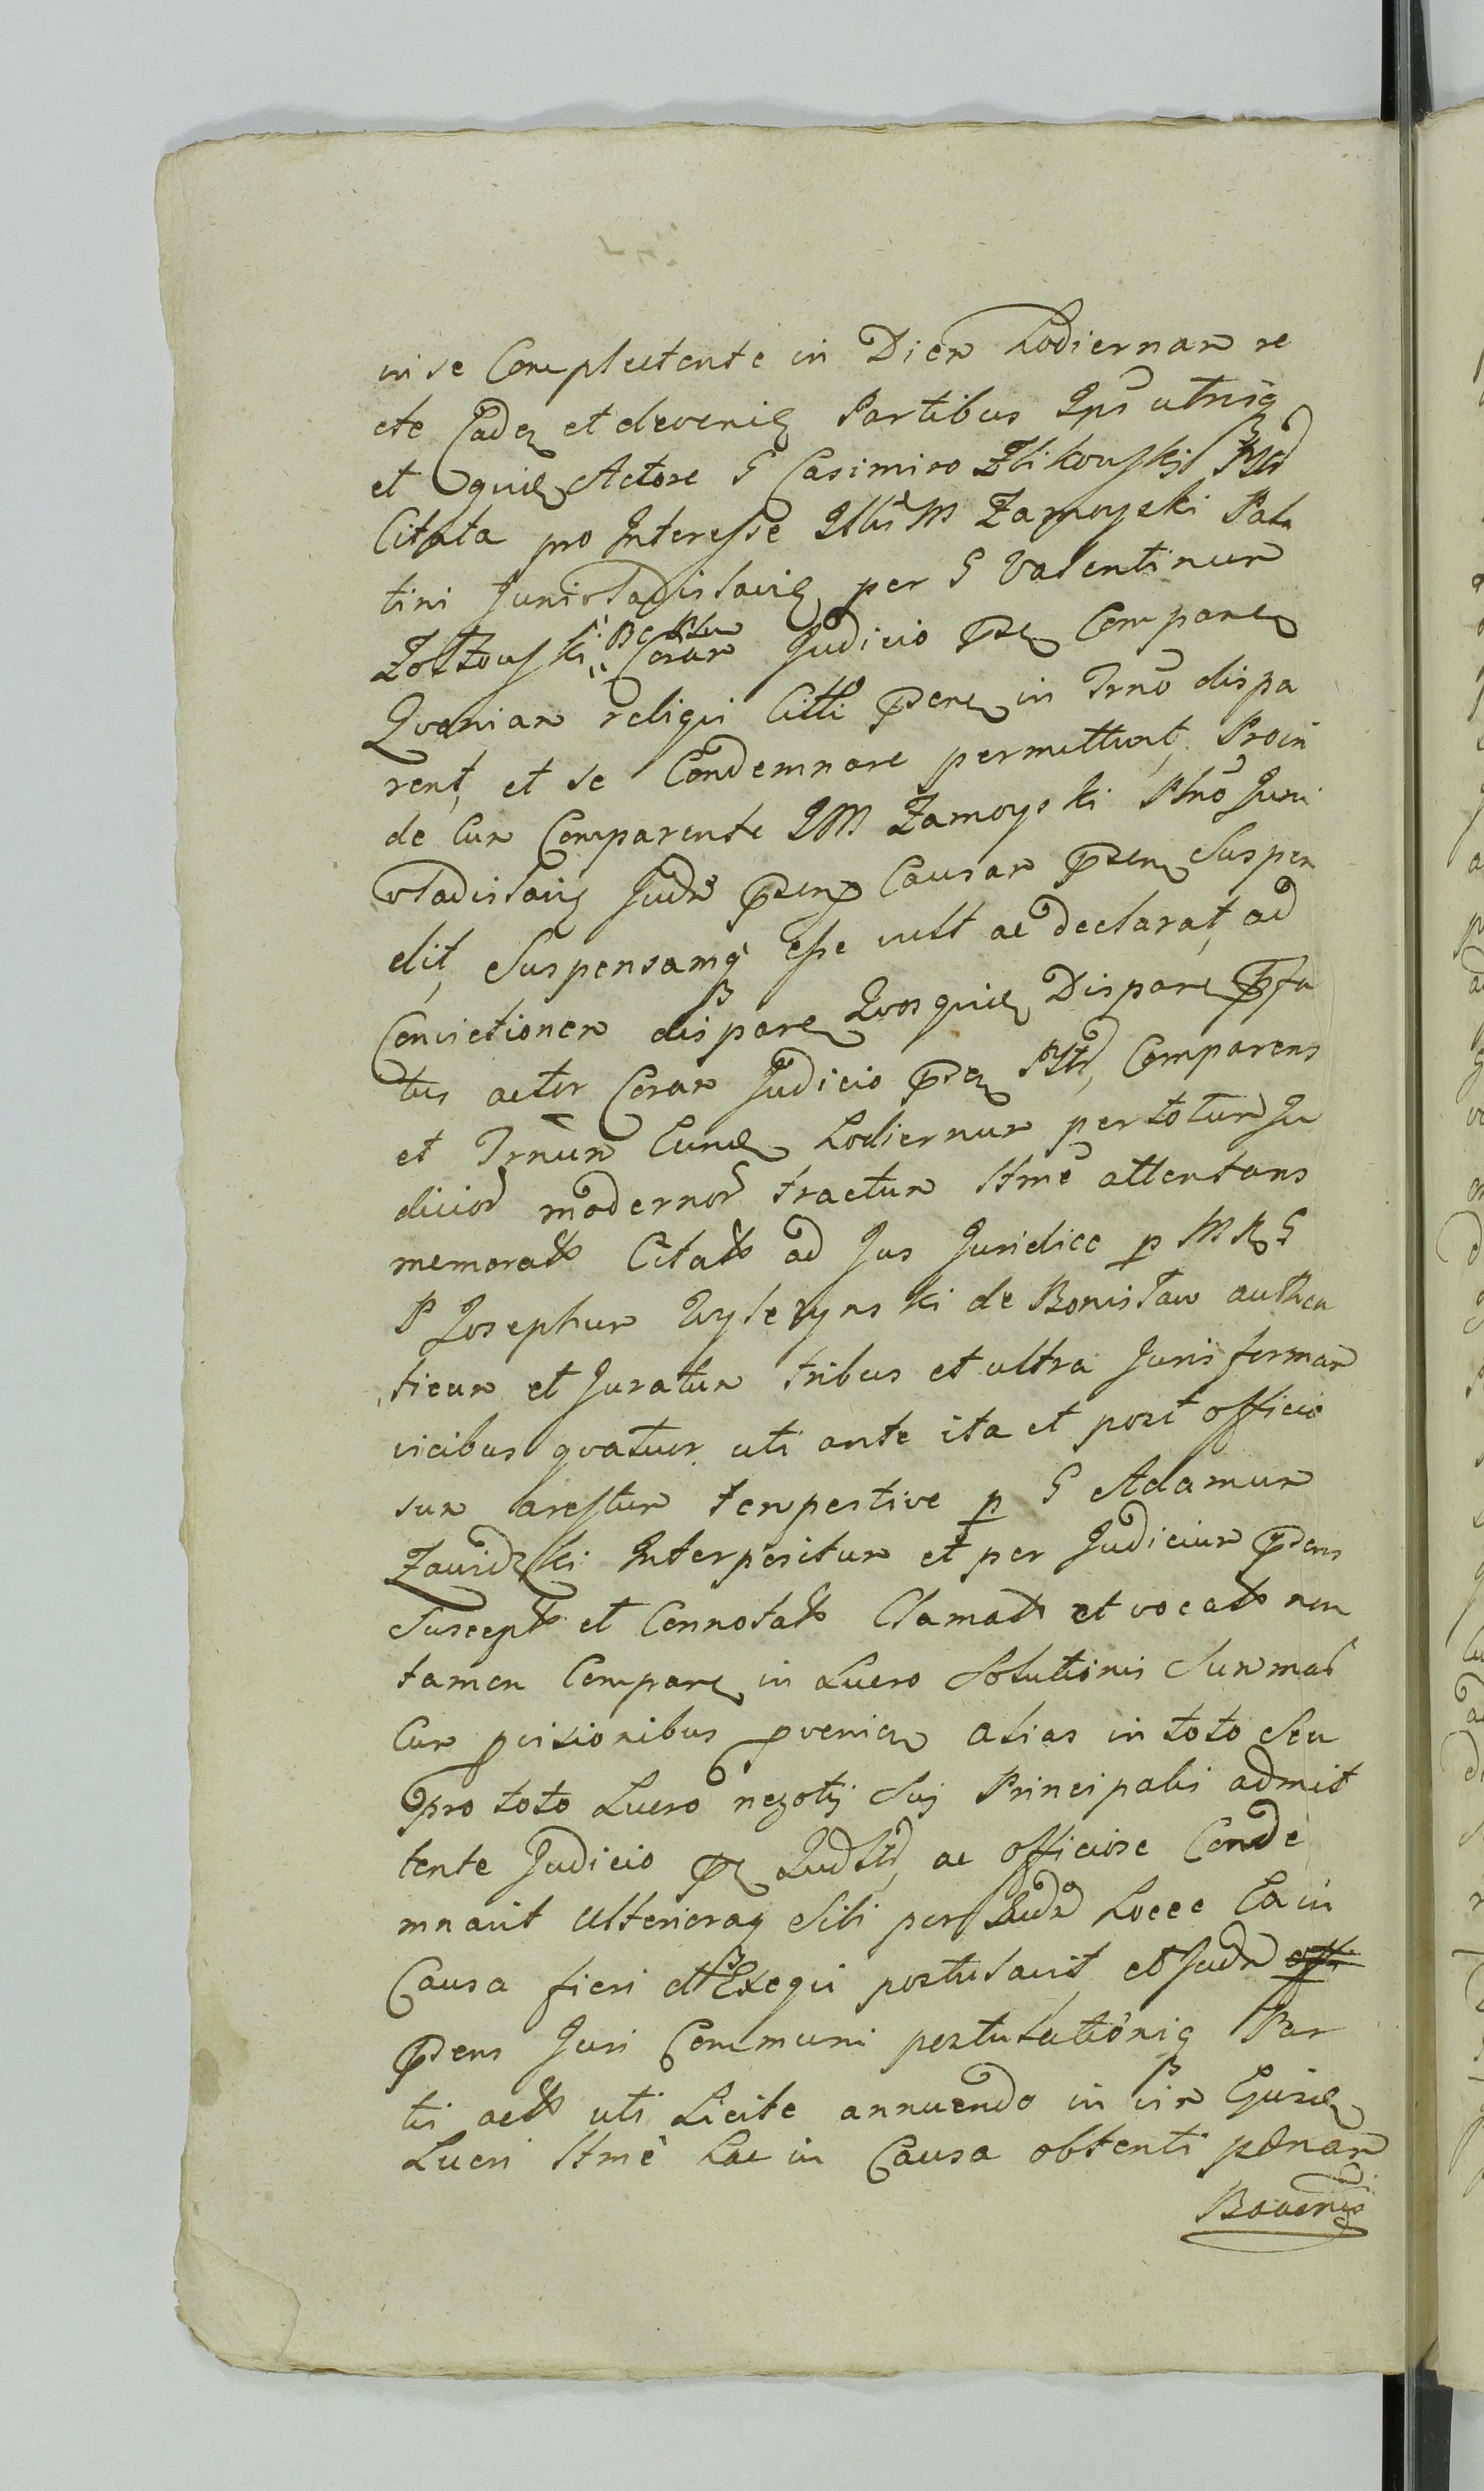 in se Complectente in Diem hodiernam re
cte Caden et deveniē Partibus Ipīs utrisq
et quidē Actore G Casimiro Zbikowski Psltr
Citata pro Interesse Illīs M Zamoyski Pala
tini Junivladislaviē per G Valentinum
Zołtowski Coram Judicio pntē Comparen
Qvoniam reliqui Citti pntem in Trnō dispa
rent, et se Condemnare permittunt, Proin
de Cum Comparente IM Zamoyski Pltnō Juni
vladislaviē Judm pnsens Causam pntem Suspen
dit, Suspensamq esse vult ac declarat, ad
Convictionem disparen Qvos quidē Disparen prfa
tus actor Coram Judicio pnti Psltr Comparens
et Trnūm Eundē hodiernum per totum Ju
dicior modernor tractum ltme attentans
memorat Citat ad Jus Juridice p M R G
P Josephum Wyleżynski de Bonisław authen
ticum et Juratum tribus et ultra Juris formam
vicibus qvatuor uti ante ita et post officio
sum arestum tempestive p G Adamum
Zawidzki Interpositum et per Judicium pnsens
Suscept et Connotat Clamat et vocat non
tamen Comparen in Lucro Solutionis Summar
Cum pvisionibus pvenien alias in toto Seu
pro toto Lucro negotij Sui Principalis admit
tente Judicio pnti Judltr ac officiose Conde
mnavit Ulterioraq Sibi per Judm hocce Ea in
Causa fieri et Exequi postulavit, et Judm
pnsens Juri Communi postulationiq Par
tis act uti Licite annuendo in vim Ejusdē
Lucri ltme hac in Causa obtenti pænam
Bannis